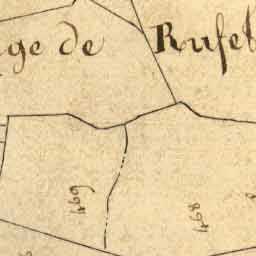 ge de Rufet
469
468